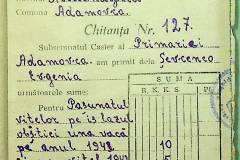 Comuna Adamovca.
Chitanța Nr. 127.
Subsemnatul Casier al Primariei
Adamovca. am primit dela Șevcenco
Evgenia
următoarele sume:
SUMA
R. K. K S
Pentru Pasunatul
vitelor pe islazul
obștiei una vacă
pe anul 1948
10
vitel 194
5